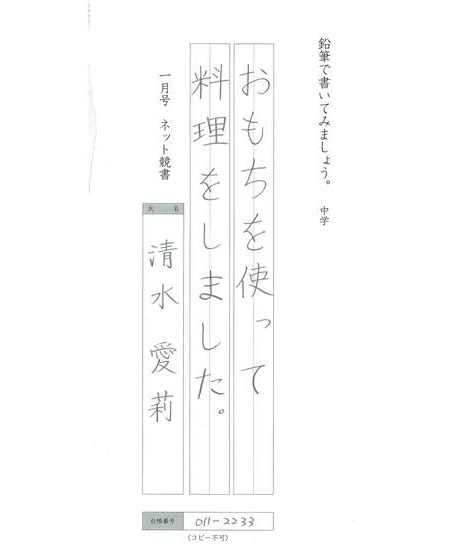 鉛筆で書いてみましょう。 中学
おもちを使って
料理をしました。
一月号 ネット競書
氏 名
清水 愛莉
台帳番号 011-2233
〈コピー不可〉